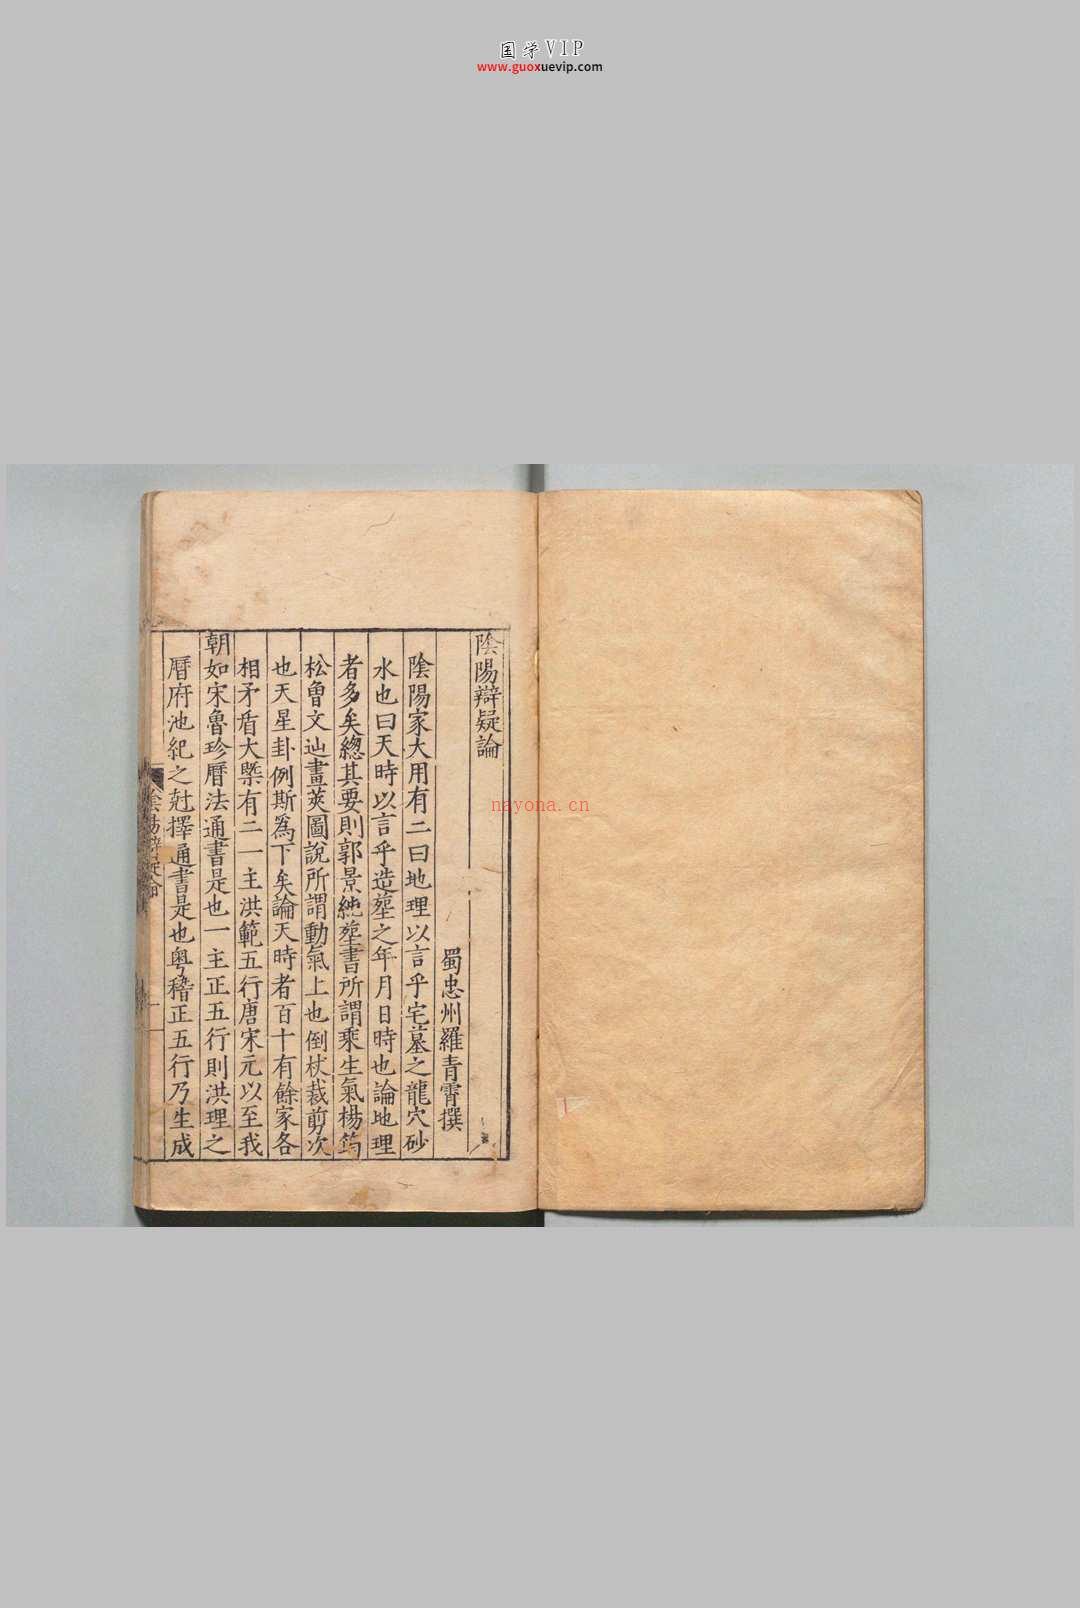 国学VIP
www.guoxuevip.com
陰陽辯疑論
蜀忠州羅青霄撰
陰陽家大用有二曰地理以言乎宅墓之龍穴砂
水也曰天時以言乎造塟之年月日時也論地理
者多矣總其要則郭景純塟書所謂乘生氣楊筠
松曾文辿畫莢圖說所謂動氣上也倒杖裁剪次
也天星卦例斯爲下矣論天時者百十有餘家各
相矛盾大槩有二一主洪範五行唐宋元以至我
朝如宋魯珍曆法通書是也一主正五行則洪理之
曆府池紀之尅擇通書是也粤稽正五行乃生成
nayona.cn